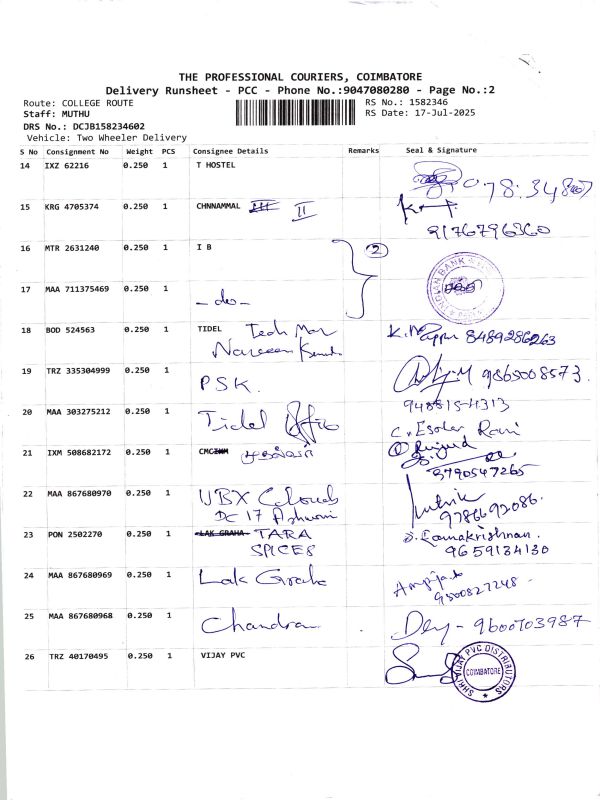 THE PROFESSIONAL COURIERS, COIMBATORE
Delivery Runsheet - PCC - Phone No.:9047080280 - Page No.:2
Route: COLLEGE ROUTE RS No.: 1582346
Staff: MUTHU RS Date: 17-Jul-2025
DRS No.: DCJB158234602
Vehicle: Two Wheeler Delivery
S No Consignment No Weight PCS Consignee Details Remarks Seal & Signature
14 IXZ 62216 0.250 1 T HOSTEL
15 KRG 4705374 0.250 1 CHNNAMMAL III II
9176796360
16 MTR 2631240 0.250 1 I B 2
INDIAN BANK
17 MAA 711375469 0.250 1 - do -
18 BOD 524563 0.250 1 TIDEL Tech
Naveen 8489286263
19 TRZ 335304999 0.250 1 PSK. 9865008573.
948815-4313
20 MAA 303275212 0.250 1 Tidel
C. Rani
21 IXM 508682172 0.250 1 CMC
3790547265
22 MAA 867680970 0.250 1 UBX Clouds
DC 17 Ashwini 9786692086.
23 PON 2502270 0.250 1 LAK GRAHA TARA S. Ramakrishnan.
SPICES 9659134130
24 MAA 867680969 0.250 1 Lak Grah
9500827248
25 MAA 867680968 0.250 1 Chandran - 9600703987
26 TRZ 40170495 0.250 1 VIJAY PVC
SHRI VIJAY PVC DISTRIBUTORS
COIMBATORE